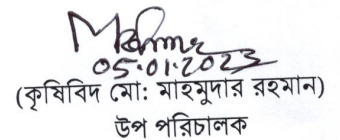 05.01.2023
(কৃষিবিদ মো: মাহমুদার রহমান)
উপ পরিচালক